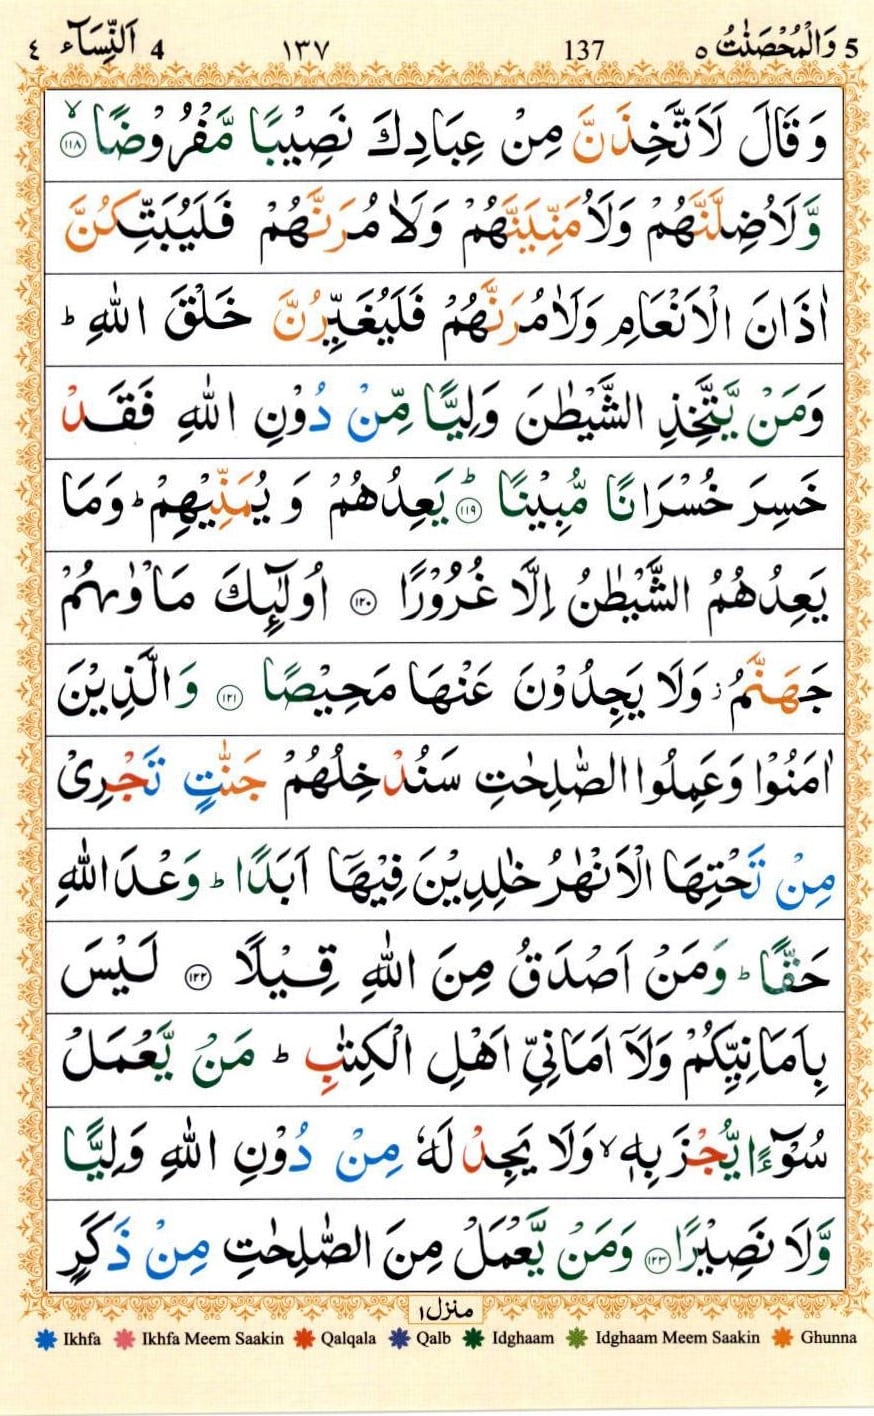 5 وَالْمُحْصَنٰتُ ٥ 137 ١٣٧ 4 اَلنِّسَآء ٤
وَ قَالَ لَاَتَّخِذَنَّ مِنْ عِبَادِكَ نَصِيْبًا مَّفْرُوْضًا ۙ ١١٨
وَّ لَاُضِلَّنَّهُمْ وَلَاُمَنِّيَنَّهُمْ وَلَاٰمُرَنَّهُمْ فَلَيُبَتِّكُنَّ
اٰذَانَ الْاَنْعَامِ وَلَاٰمُرَنَّهُمْ فَلَيُغَيِّرُنَّ خَلْقَ اللّٰهِ ؕ
وَمَنْ يَّتَّخِذِ الشَّيْطٰنَ وَلِيًّا مِّنْ دُوْنِ اللّٰهِ فَقَدْ
خَسِرَ خُسْرَانًا مُّبِيْنًا ؕ ١١٩ يَعِدُهُمْ وَ يُمَنِّيْهِمْ ؕ وَمَا
يَعِدُهُمُ الشَّيْطٰنُ اِلَّا غُرُوْرًا ١٢٠ اُولٰٓئِكَ مَاْوٰىهُمْ
جَهَنَّمُ ز وَلَا يَجِدُوْنَ عَنْهَا مَحِيْصًا ١٢١ وَالَّذِيْنَ
اٰمَنُوْا وَعَمِلُوا الصّٰلِحٰتِ سَنُدْخِلُهُمْ جَنّٰتٍ تَجْرِىْ
مِنْ تَحْتِهَا الْاَنْهٰرُ خٰلِدِيْنَ فِيْهَاۤ اَبَدًا ؕ وَعْدَ اللّٰهِ
حَقًّا ؕ وَمَنْ اَصْدَقُ مِنَ اللّٰهِ قِيْلًا ١٢٢ لَيْسَ
بِاَمَانِيِّكُمْ وَلَاۤ اَمَانِىِّ اَهْلِ الْكِتٰبِ ؕ مَنْ يَّعْمَلْ
سُوْٓءًا يُّجْزَ بِهٖ ۙ وَلَا يَجِدْ لَهٗ مِنْ دُوْنِ اللّٰهِ وَلِيًّا
وَّلَا نَصِيْرًا ١٢٣ وَمَنْ يَّعْمَلْ مِنَ الصّٰلِحٰتِ مِنْ ذَكَرٍ
منزل ١
Ikhfa Ikhfa Meem Saakin Qalqala Qalb Idghaam Idghaam Meem Saakin Ghunna